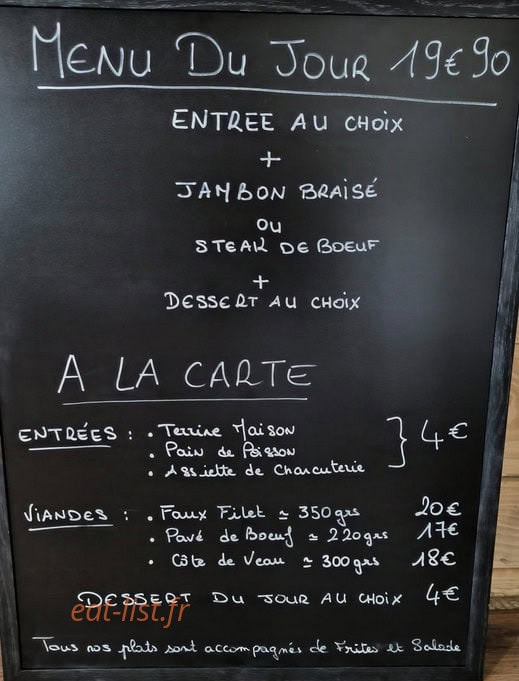 MENU DU JOUR 19€90
ENTREE AU CHOIX
+
JAMBON BRAISÉ
OU
STEAK DE BOEUF
+
DESSERT AU CHOIX
A LA CARTE
ENTRÉES : • Terrine Maison
• Pain de Poisson } 4€
• Assiette de Charcuterie
VIANDES : • Faux Filet ≃ 350grs 20€
• Pavé de Boeuf ≃ 220grs 17€
• Côte de Veau ≃ 300grs 18€
DESSERT DU JOUR AU CHOIX 4€
eat-list.fr
Tous nos plats sont accompagnés de Frites et Salade